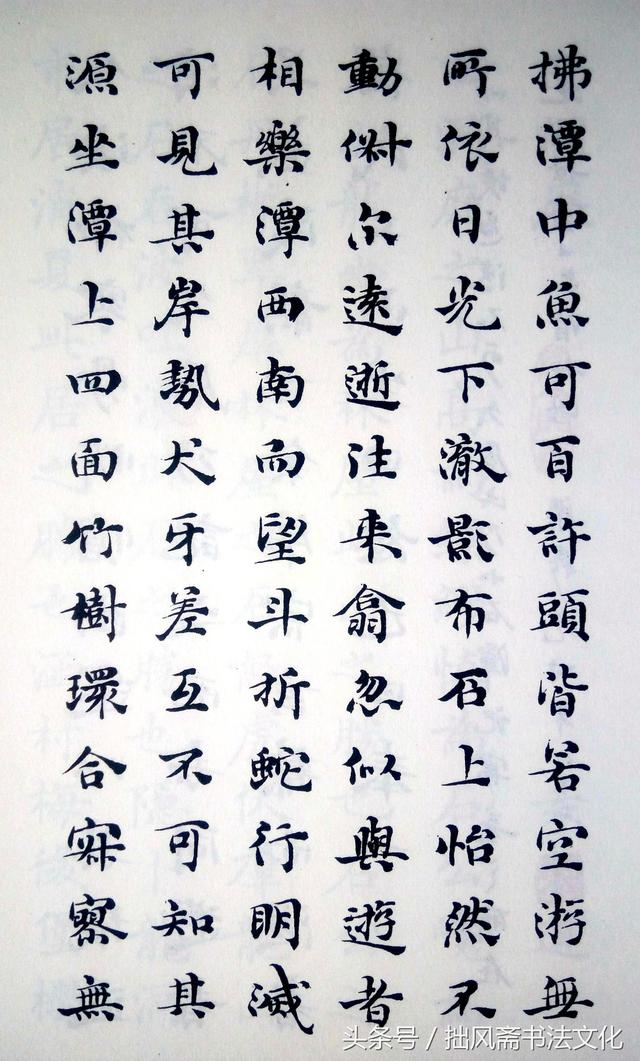 拂潭中魚可百許頭皆若空游無
所依日光下澈影布石上怡然不
動俶尔遠逝往来翕忽似與遊者
相樂潭西南而望斗折蛇行明滅
可見其岸勢犬牙差互不可知其
源坐潭上四面竹樹環合寂寥無
头条号/拙风斋书法文化